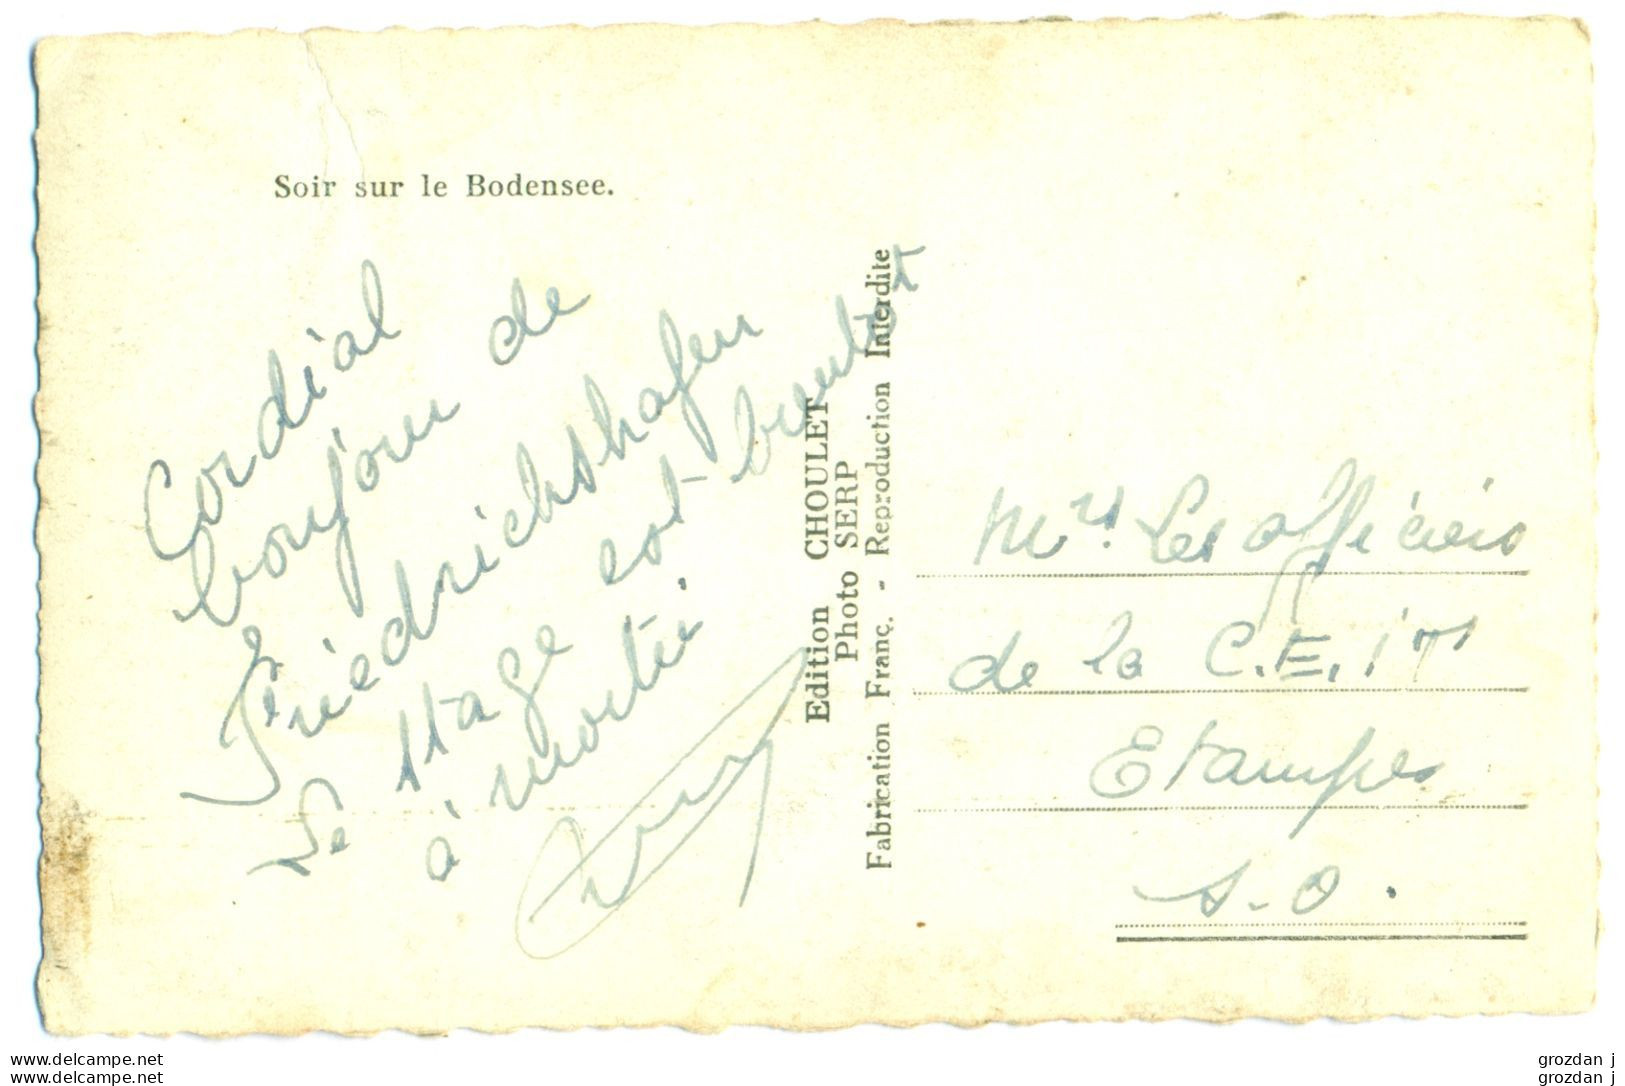 Soir sur le Bodensee.
Cordial
bonjour de
Friedrichshafen
Le stage est bientôt
à moitié
Edition CHOULET
Photo SERP
Fabrication Franç. - Reproduction Interdite
Mrs. Les officiers
de la C.E.
Etampes
S-O.
www.delcampe.net
www.delcampe.net
grozdan j
grozdan j